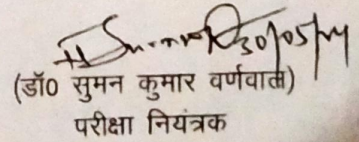 30/05/24
(डॉ0 सुमन कुमार वर्णवाल)
परीक्षा नियंत्रक